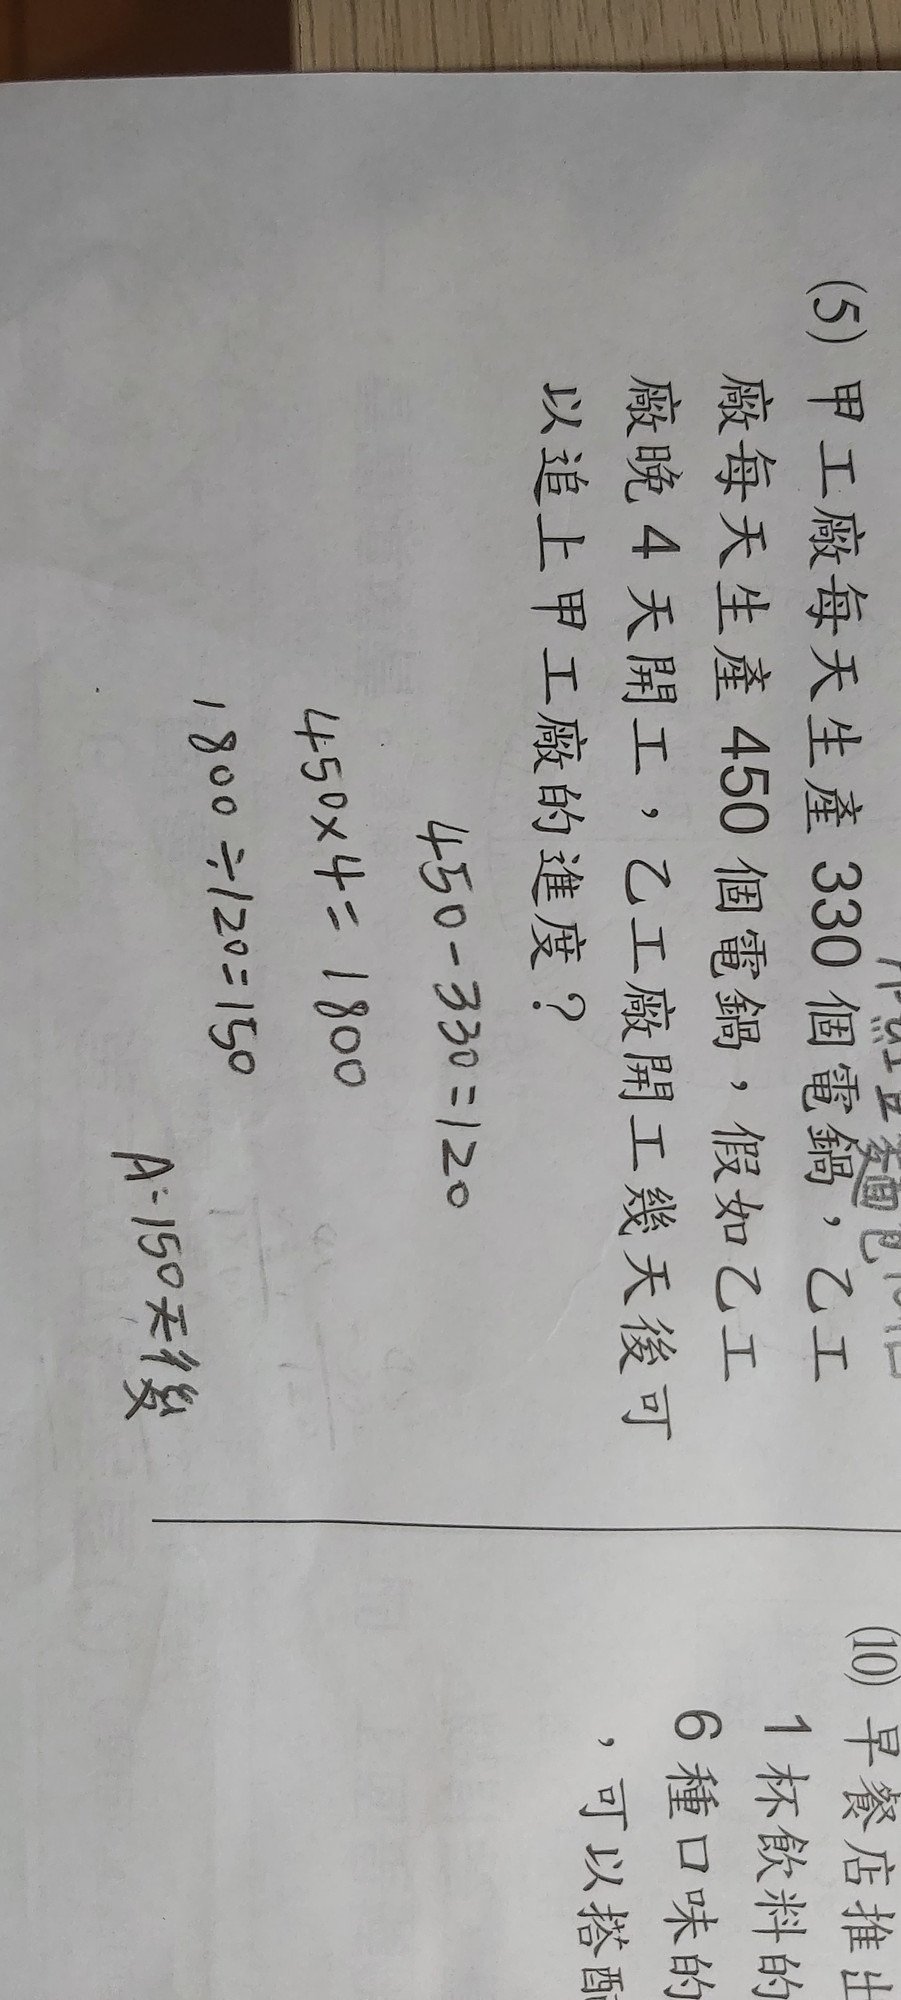 (5) 甲工廠每天生產 330 個電鍋，乙工
廠每天生產 450 個電鍋，假如乙工
廠晚 4 天開工，乙工廠開工幾天後可
以追上甲工廠的進度？
450-330=120
450×4=1800
1800÷120=150
A:150天後
(10) 早餐店推出
1 杯飲料的
6 種口味的
，可以搭配